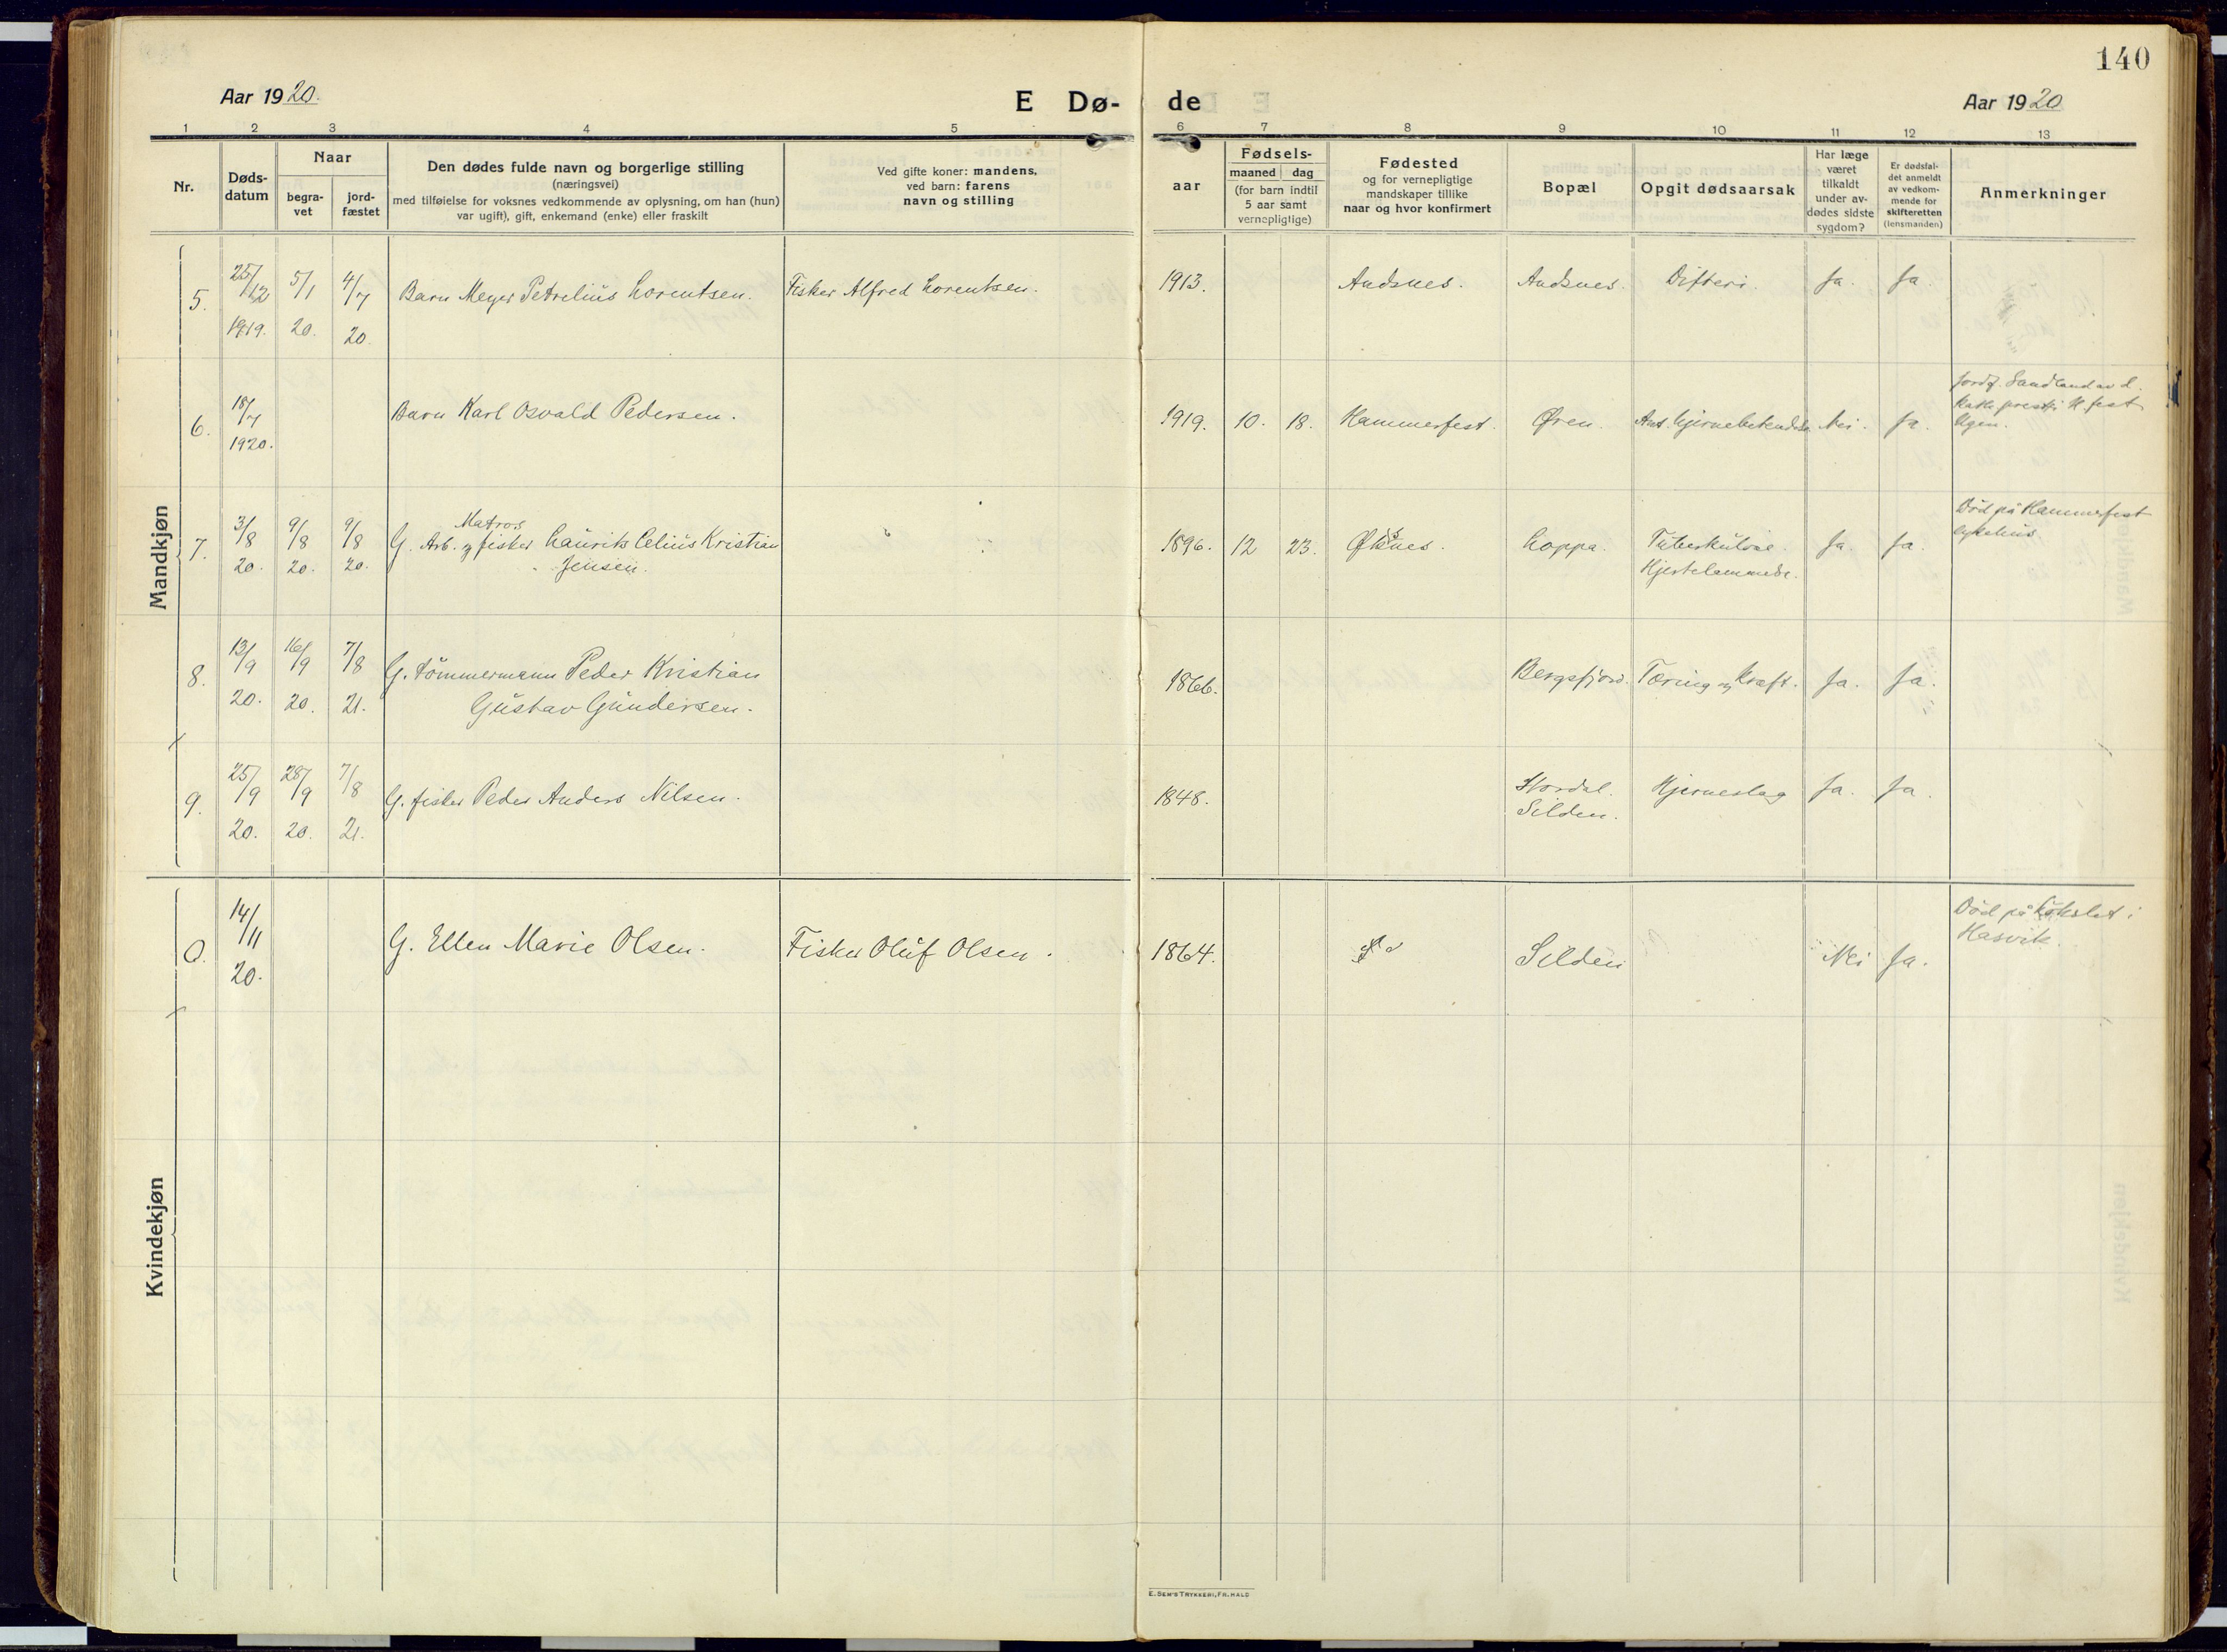 140
Aar 1920.
E Dø-
de
Aar 1920
1 2 3 4 5 6 7 8 9 10 11 12 13
Nr.
Døds-
datum
Naar
begra-
vet
jord-
fæstet
Den dødes fulde navn og borgerlige stilling
(næringsvei)
med tilføielse for voksnes vedkommende av oplysning, om han (hun)
var ugift), gift, enkemand (enke) eller fraskilt
Ved gifte koner: mandens,
ved barn: farens
navn og stilling
aar
Fødsels-
maaned dag
(for barn indtil
5 aar samt
vernepligtige)
Fødested
og for vernepligtige
mandskaper tillike
naar og hvor konfirmert
Bopæl
Opgit dødsaarsak
Har læge
været
tilkaldt
under av-
dødes sidste
sygdom?
Er dødsfal-
det anmeldt
av vedkom-
mende for
skifteretten
(lensmanden)
Anmerkninger
Mandkjøn
5. 25/12 1919. 5/1 20. 4/7 20. Barn Meyer Petrelius Lorentsen. Fisker Alfred Lorentsen. 1913. Andsnes. Andsnes. Difteri. Ja. Ja.
6. 18/7 1920. Barn Karl Osvald Pedersen. 1919. 10. 18. Hammerfest. Øren. Ant. hjernebetendelse Nei. Ja.
Jordf. Sandland av d.
kath. prest i H.fest
7. 3/8 20. 9/8 20. 9/8 20. Matros
G. Arb. og fisker Laurits Celius Kristian
Jensen.
1896. 12 23. Øksnes. Loppa. Tuberkulose.
Hjertelammelse.
Ja. Ja.
Død på Hammerfest
sykehus
8. 13/9 20. 16/9 20. 7/8 21. G. tömmermann Peder Kristian
Gustav Gundersen.
1866. Bergsfjord. Tæring og Kræft. Ja. Ja.
9. 25/9 20. 28/9 20. 7/8 21. G. fisker Peder Anders Nilsen. 1848. Stordal.
Silden.
Hjerneslag Ja. Ja.
Kvindekjøn
14/11 20. G. Ellen Marie Olsen. Fisker Oluf Olsen. 1864. Silden Nei Ja.
Død på
Hasvik.
E. SEM'S TRYKKERI, FR.HALD